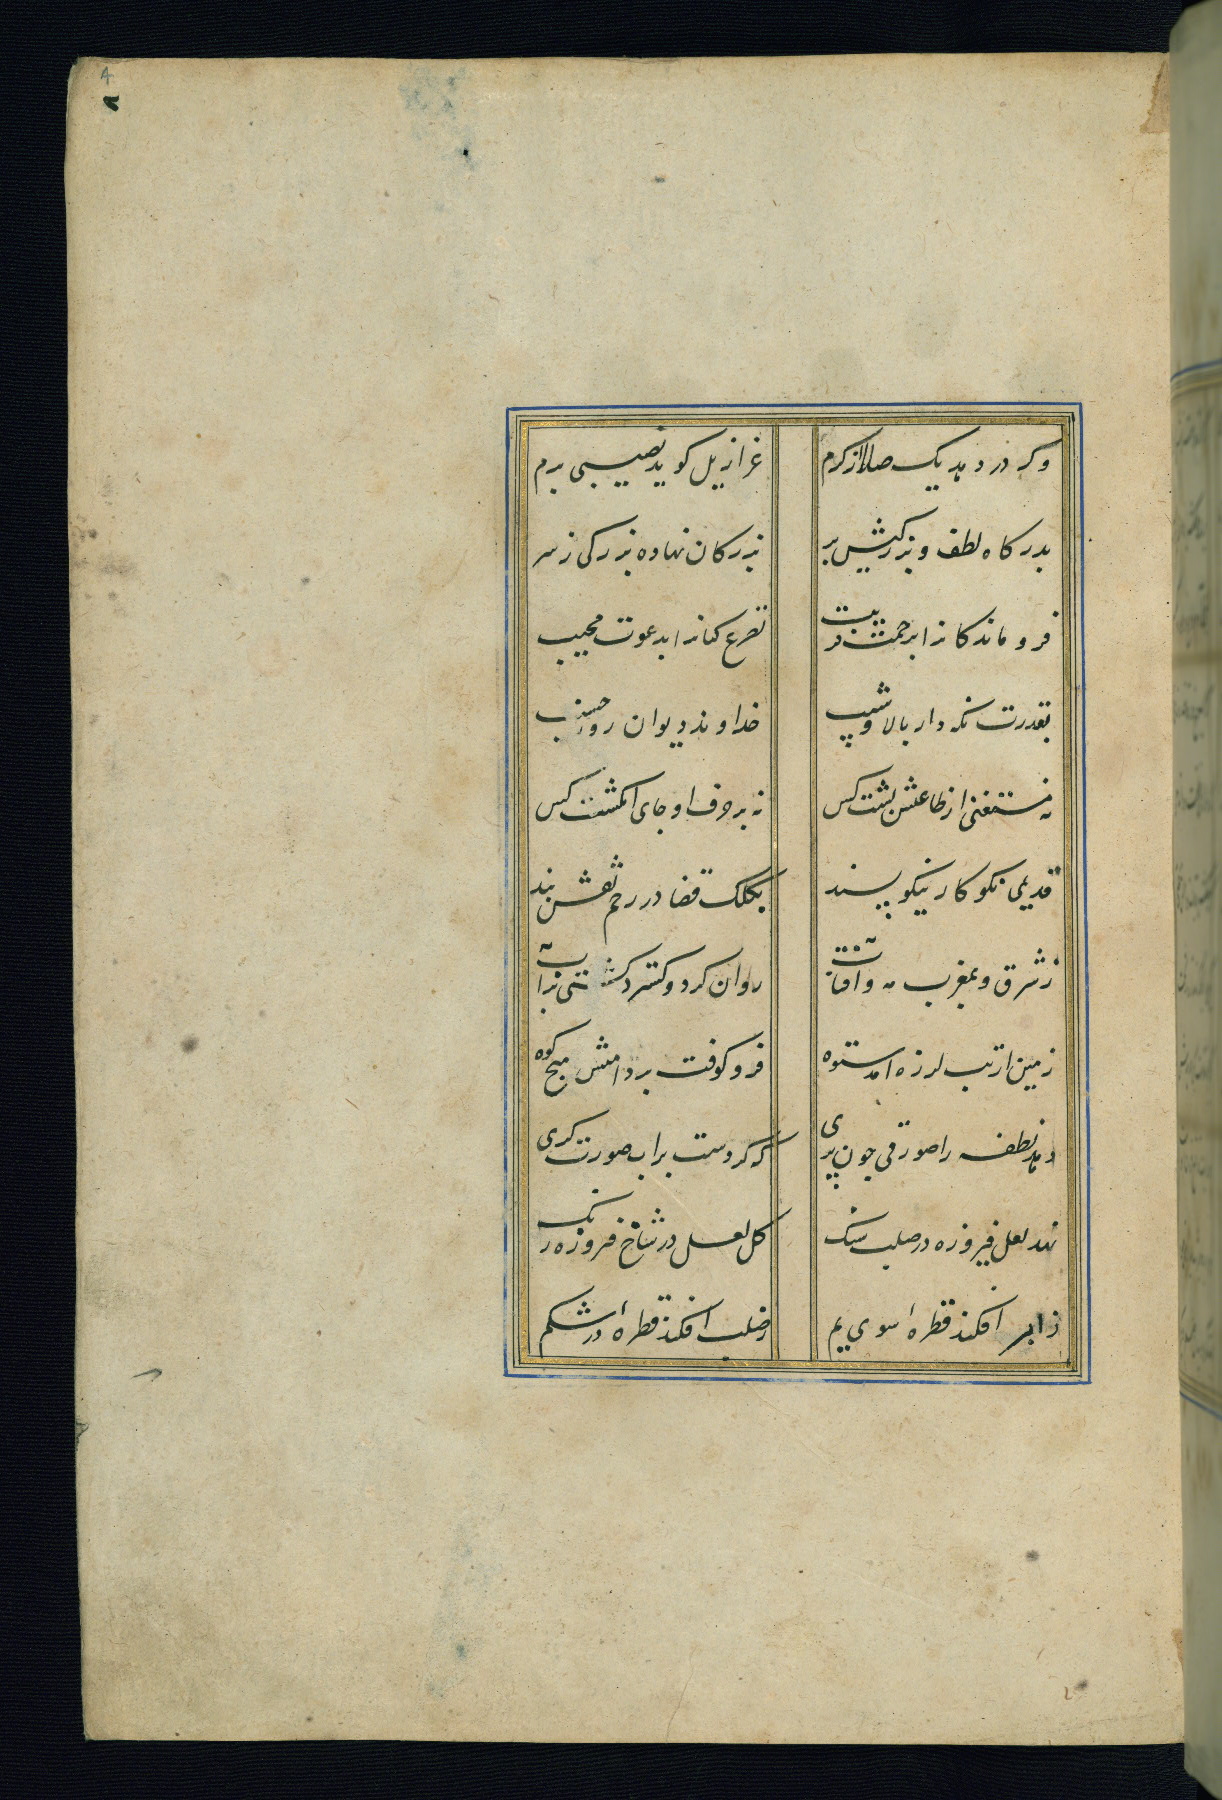 وکر در دهد یک صلا از کرم
عزازیل کوید نصیبی برم
بدرکاه لطف و بزرکیش بر
بزرکان نهاده بزرکی ز سر
فروماندکانرا برحمت قریب
تضرع کنانرا بدعوت مجیب
بقدرت نکه دار بالا و شیب
خداوند دیوان روز حسیب
نه مستغنی از طاعتش پشت کس
نه بر حرف او جای انکشت کس
قدیمی نکوکار نیکو پسند
بکلک قضا در رحم نقش بند
ز مشرق بمغرب مه و آفتاب
روان کرد و کسترد کیتی بر آب
زمین از تب لرزه آمد ستوه
فرو کوفت بر دامنش میخ کوه
دهد نطفه را صورتی چون پری
که کردست بر آب صورت کری
نهد لعل و فیروزه در صلب سنک
کل لعل در شاخ فیروزه رنک
ز ابر افکند قطرهٔ سوی یم
ز صلب افکند قطرهٔ در شکم